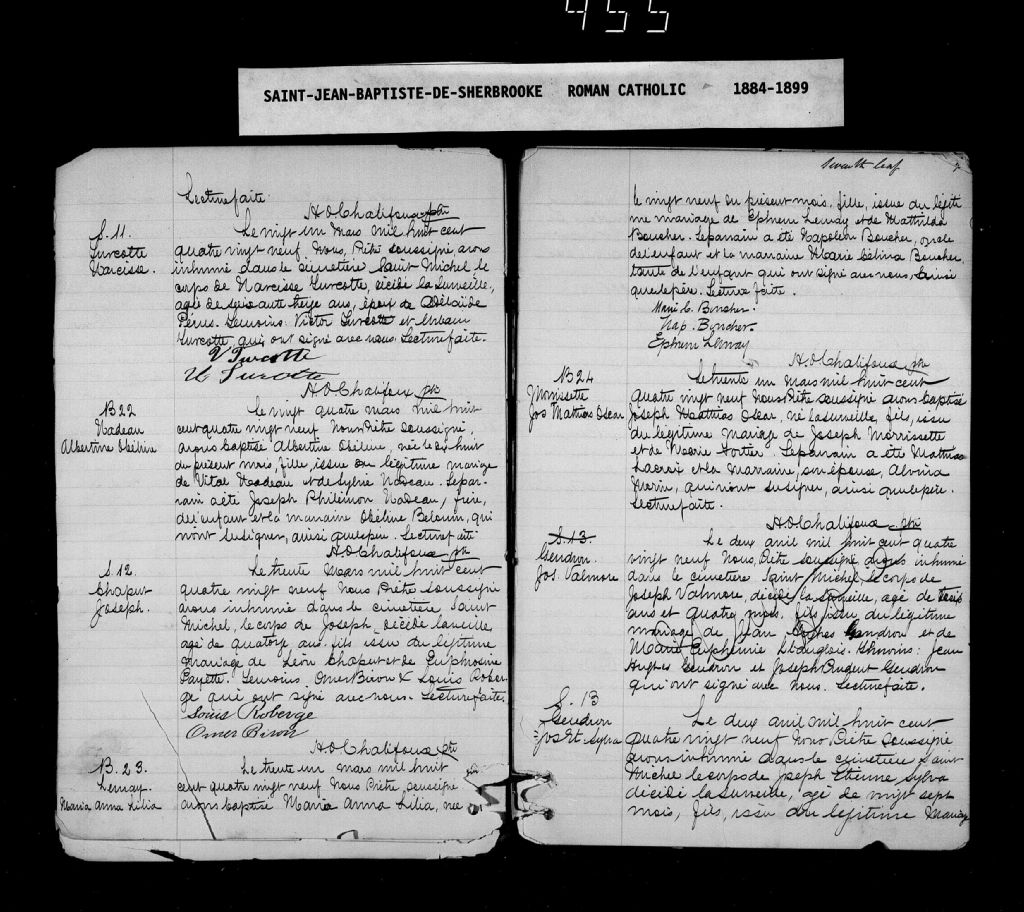 455
SAINT-JEAN-BAPTISTE-DE-SHERBROOKE ROMAN CATHOLIC 1884-1899
Lecture faite.
H.O. Chalifoux ptre
S. 11.
Turcotte
Narcisse.
Le vingt un mars mil huit cent
quatre vingt neuf. Nous, Prêtre soussigné avons
inhumé dans le cimetière Saint Michel le
corps de Narcisse Turcotte, décédé la surveille,
agé de soixante treize ans, époux de Adélaïde
Témoins: Victor Turcotte et Urbain
Turcotte qui ont signé avec nous. Lecture faite.
V Turcotte
U Turcotte
H.O. Chalifoux ptre
B 22
Nadeau
Albertine Obéline
Le vingt quatre mars mil huit
cent quatre vingt neuf Nous Prêtre soussigné,
avons baptisé Albertine Obéline, née le dix huit
du présent mois, fille, issue du légitime mariage
de Vital Nadeau et de Sylvie Nadeau. Le par-
rain a été Joseph Philémon Nadeau, frère,
de l'enfant et la marraine Obéline qui
n'ont su signer, ainsi que le père. Lecture faite
H.O. Chalifoux ptre
S. 12
Chaput
Joseph.
Le trente Mars mil huit cent
quatre vingt neuf Nous Prêtre soussigné
avons inhumé dans le cimetière Saint
Michel, le corps de Joseph, décédé la veille
agé de quatorze ans, fils issu du légitime
mariage de Léon Chaput et de Euphrosine
Payette. Témoins, Omer Biron & Louis Rober-
ge qui ont signé avec nous. Lecture faite.
Louis Roberge
Omer Biron
H.O. Chalifoux ptre
B. 23.
Lemay.
Maria Anna Lilia
Le trente un mars mil huit
cent quatre vingt neuf Nous Prêtre, soussigné
avons baptisé Maria Anna Lilia, née
Seventh leaf 7
le vingt neuf du présent mois, fille, issue du légiti-
me mariage de Ephrem Lemay et de Mathilda
Boucher. Le parrain a été Napoléon Boucher, oncle
de l'enfant et la marraine Marie Célina Boucher,
tante de l'enfant qui ont signé avec nous, ainsi
que le père. Lecture faite.
Marie C. Boucher.
Nap. Boucher.
Ephrem Lemay
H.O. Chalifoux ptre
B 24
Morrissette
Jos Mathias Oscar
Le trente un mars mil huit cent
quatre vingt neuf Nous Prêtre soussigné avons baptisé
Joseph Matthias Oscar, né la surveille, fils, issu
du légitime mariage de Joseph Morrissette
et de Marie Le parrain a été Mathias
Lacroix et la marraine, son épouse, Alvina
Morin, qui n'ont su signer, ainsi que le père.
Lecture faite.
H.O. Chalifoux ptre
S. 13.
Gendron
Jos. Valmore
Le deux avril mil huit cent quatre
vingt neuf Nous, Prêtre soussigné avons inhumé
dans le cimetière Saint Michel, le corps de
Joseph Valmore, décédé la surveille, agé de trois
ans et quatre mois, fils issu du légitime
mariage de Jean Hughes Gendron et de
Marie Euphémie St Anglais. Témoins: Jean
Hughes Gendron et Joseph Prudent Gendron
qui ont signé avec nous. Lecture faite.
S. 13
Gendron
Jos Et. Sylva
Le deux avril mil huit cent
quatre vingt neuf Nous Prêtre soussigné
avons inhumé dans le cimetière Saint
Michel le corps de Joseph Etienne Sylva
décédé la surveille, agé de vingt sept
mois, fils, issu du légitime mariage